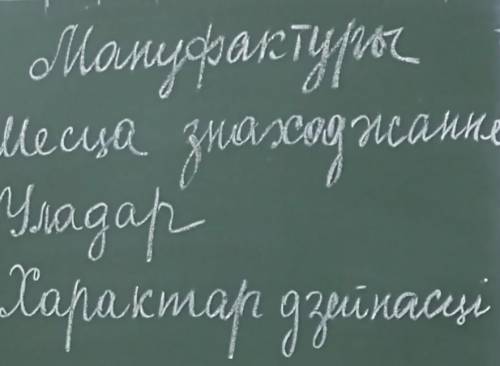 Мануфактуры
Месца знаходжанне
Уладар
Характар дзейнасці